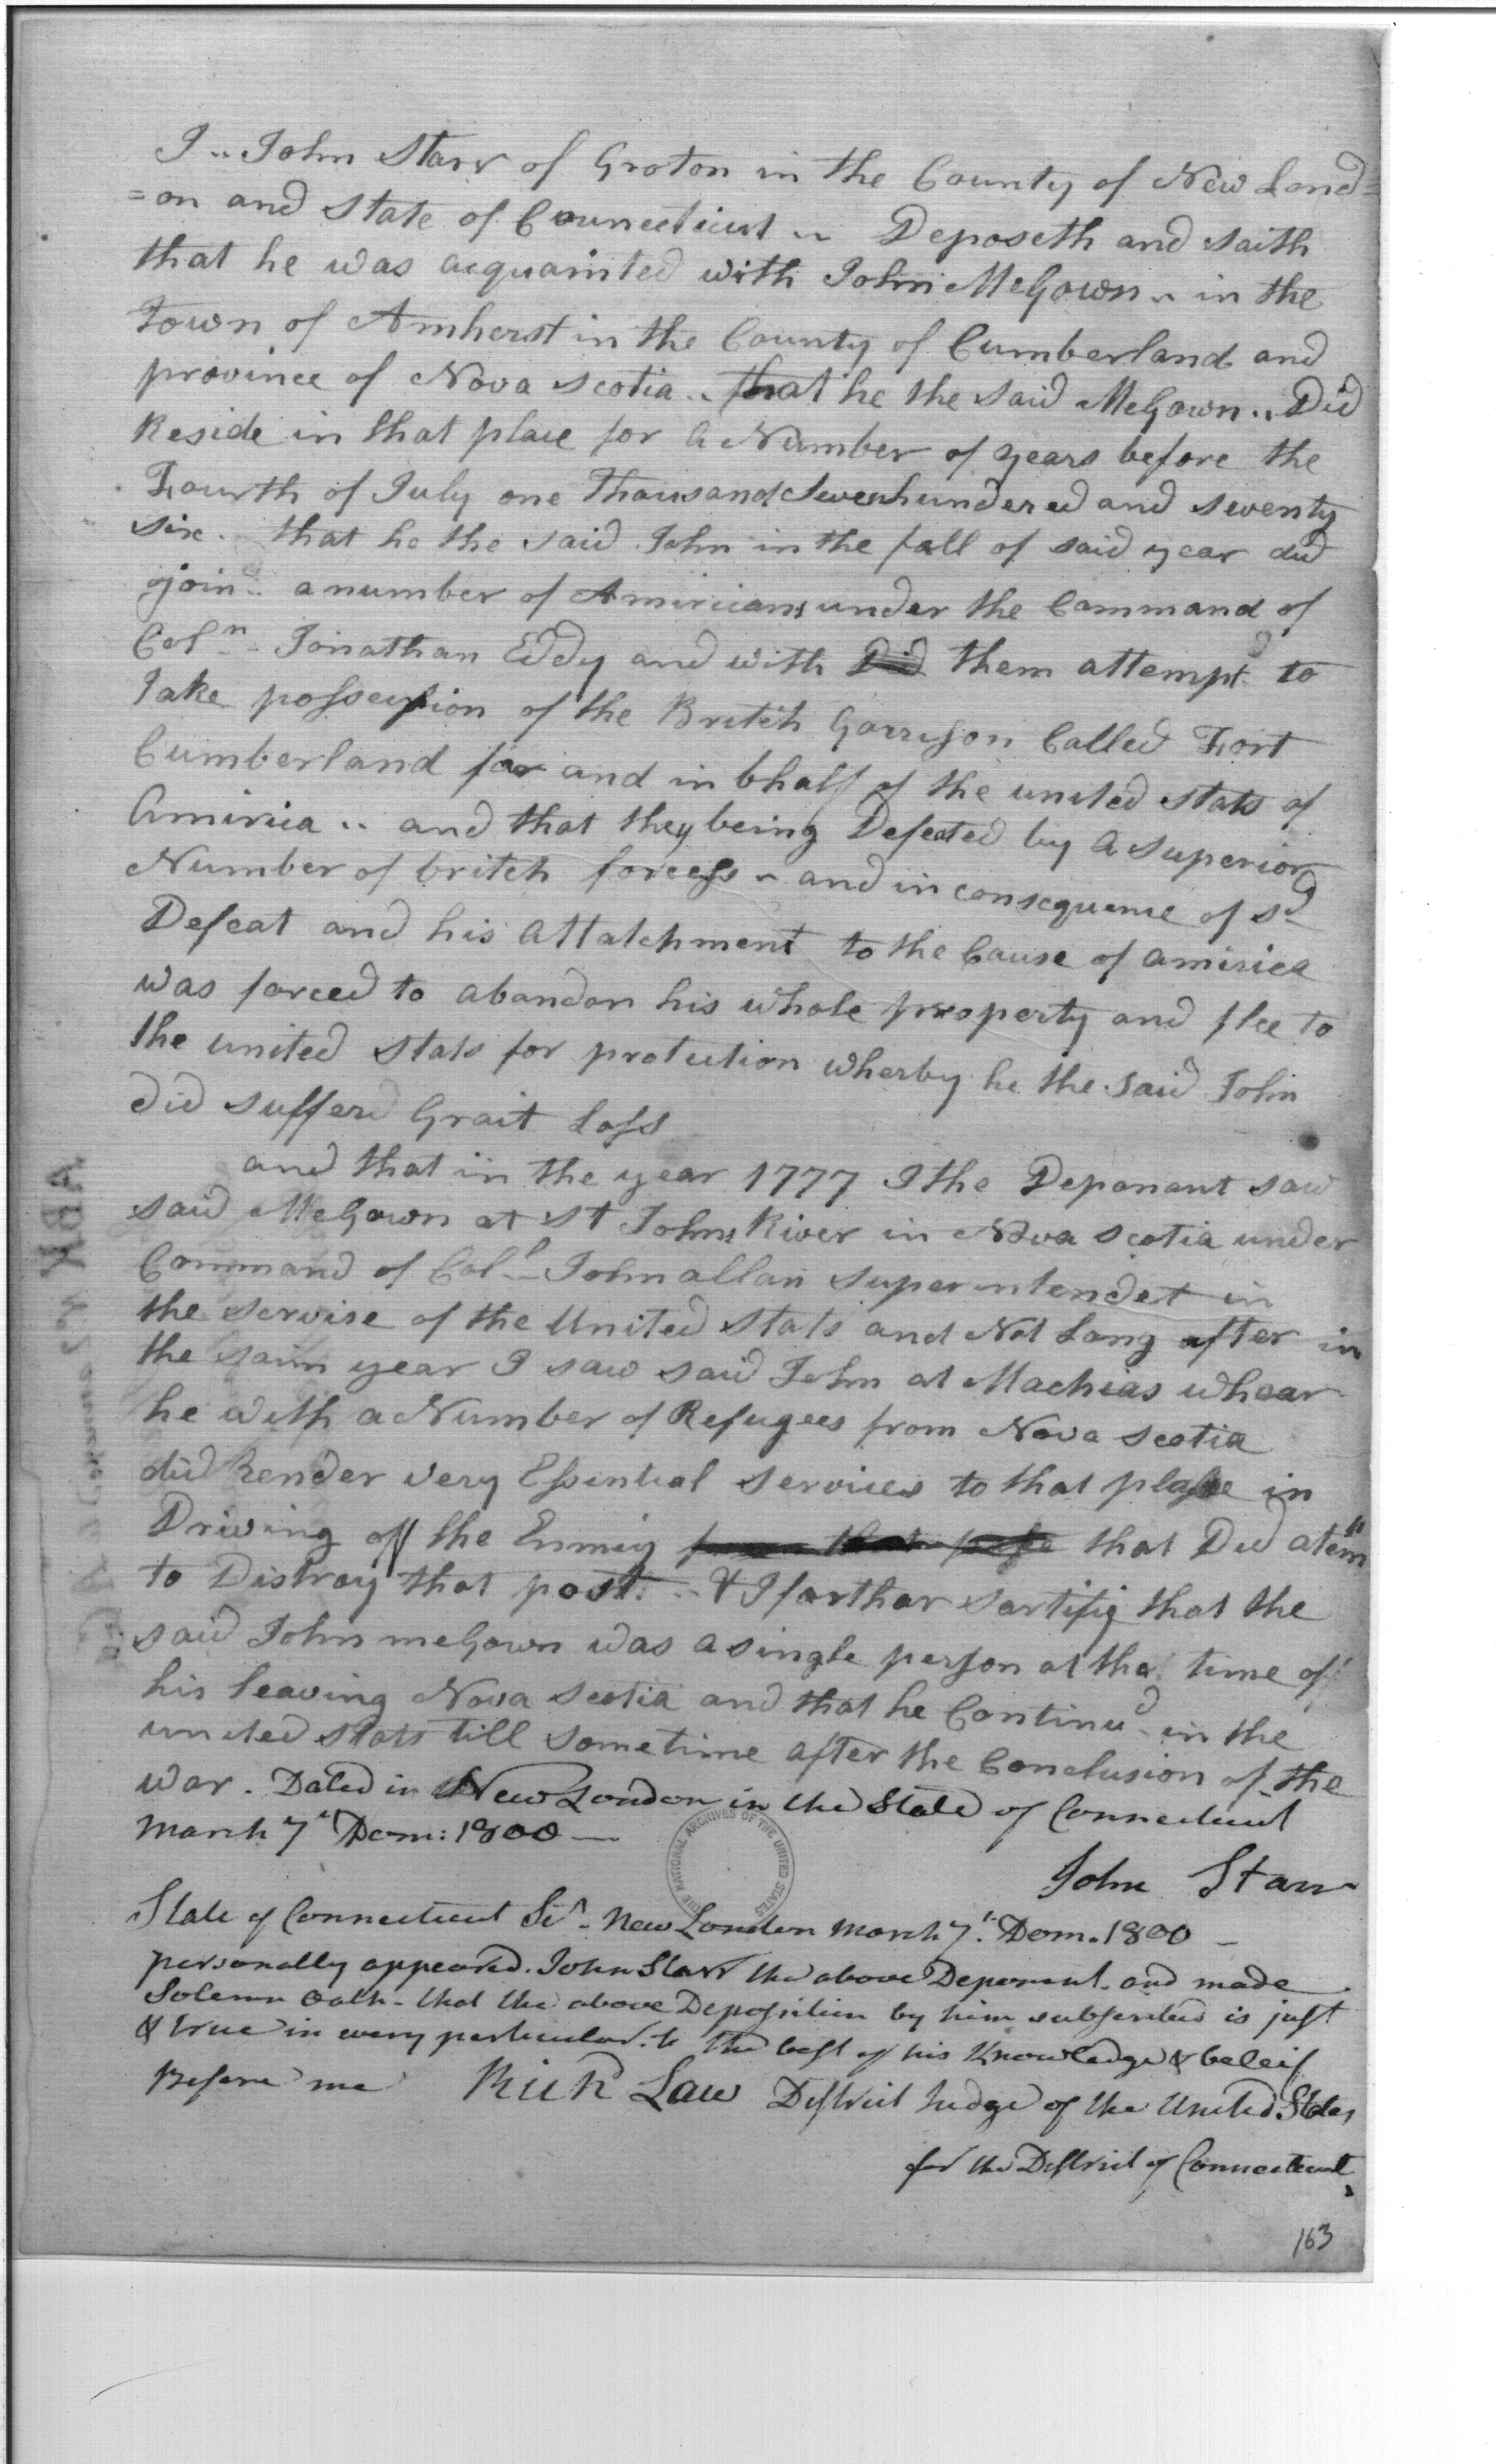 I .. John Starr of Groton in the County of New Lond=
=on and State of Counecticut ~ Deposeth and saith
that he was acquainted with John McGown ~ in the
Town of Amherst in the County of Cumberland and
province of Nova Scotia .. that he the said McGown .. Did
Reside in that place for a Number of years before the
Fourth of July one Thousand Sevenhundered and seventy
six . that he the said John in the fall of said year did
join .. a number of Amiricans under the Command of
Coln. Jonathan Eddy and with Did them attemptd to
Take possession of the Britih Garrison Called Fort
Cumberland for and in bhalf of the united stats of
Amirica .. and that they being Defeated by a superior
Number of britch forcess ~ and in consequence of sd
Defeat and his attatchment to the Cause of amirica
was forced to abandon his whole property and flee to
the united stats for protection wherby he the said John
did sufferd Grait Loss
and that in the year 1777 I the Deponant saw
said McGown at St Johns River in Nova Scotia under
Command of Coll. John allan superintendet in
the servise of the United Stats and Not Long after in
the saim year I saw said John at Machias whear
he with a Number of Refugees from Nova Scotia
did Render very Essintial services to that plase in
Driving off the Enmiy that Did atem"
to Distroy that post . & I farthar sartifiy that the
said John mcGown was a single person at the time of
his leaving Nova Scotia and that he Continud in the
united stats till sometime after the Conclusion of the
war . Dated in New London in the State of Connecticut
March 7th Dom: 1800 —
John Starr
State of Connecticut Ss. New London March 7th. Dom. 1800 —
personally appeared. John Starr the above Deponent. and made
Solemn Oath - that the above Deposition by him subscribed is just
& true in every particular. to the best of his Knowledge & beleif
Before me Richd Law District Judge of the United States
for the District of Connecticut
THE NATIONAL ARCHIVES OF THE UNITED STATES
163